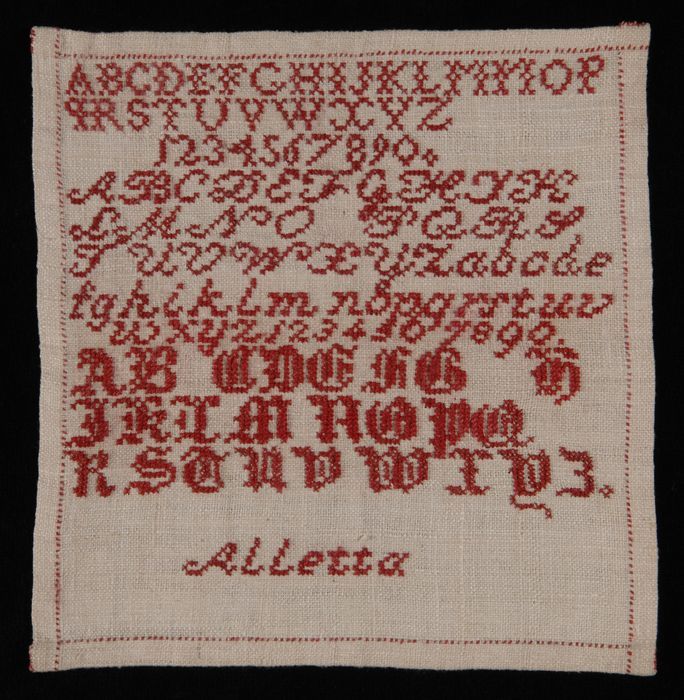 ABCDEFGHIJKLMNOP
QRSTUVWXYZ
1234567890.
ABCDEFGHIK
LMNO PQRS
TUVWXYZabcde
fghiklmnopqrstuv
wxyz1234567890
AB CDEFG H
IKLMNOPQ
RSTUVWXYZ.
Alletta